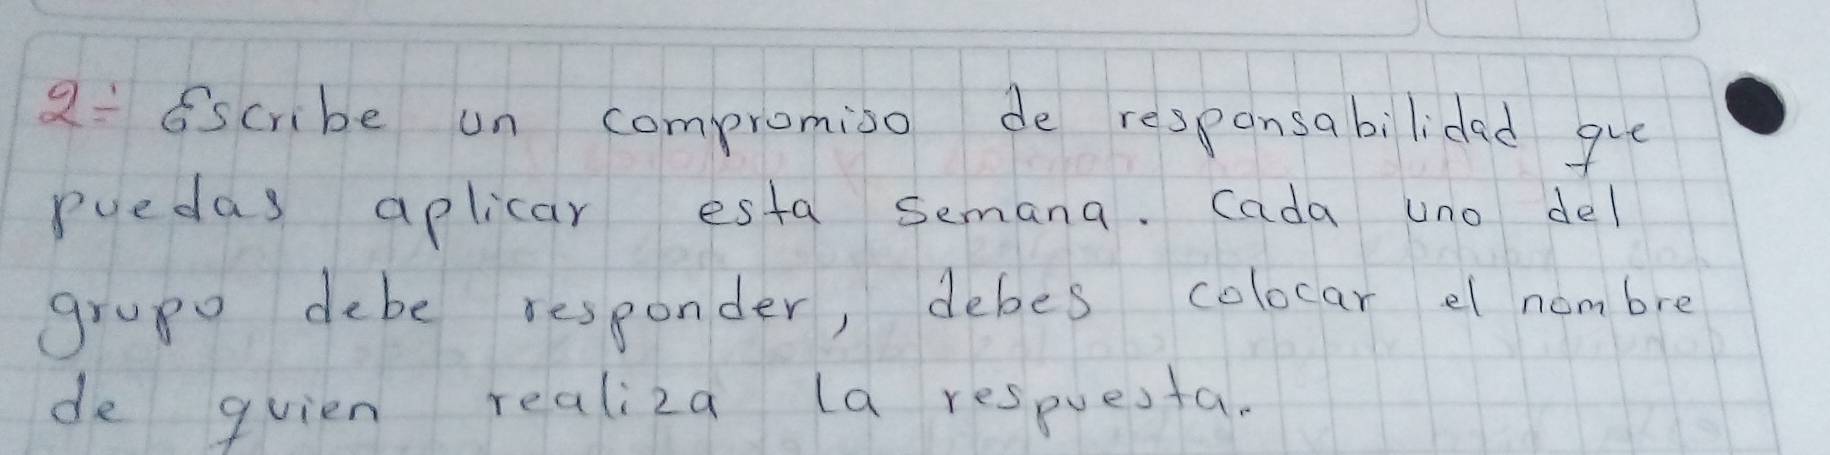 2÷ Escribe un compromiso de responsabilidad que
puedas aplicar esta semana. Cada uno del
grupo debe responder, debes colocar el nombre
de quien realiza la respuesta.